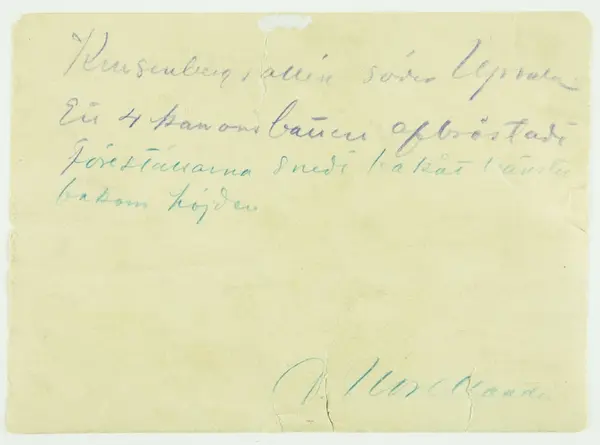 Krusenbergs allén söder Upsala
En 4 kanons batteri afbröstadt
Föreställarna snedt bakåt vänster
bakom höjden